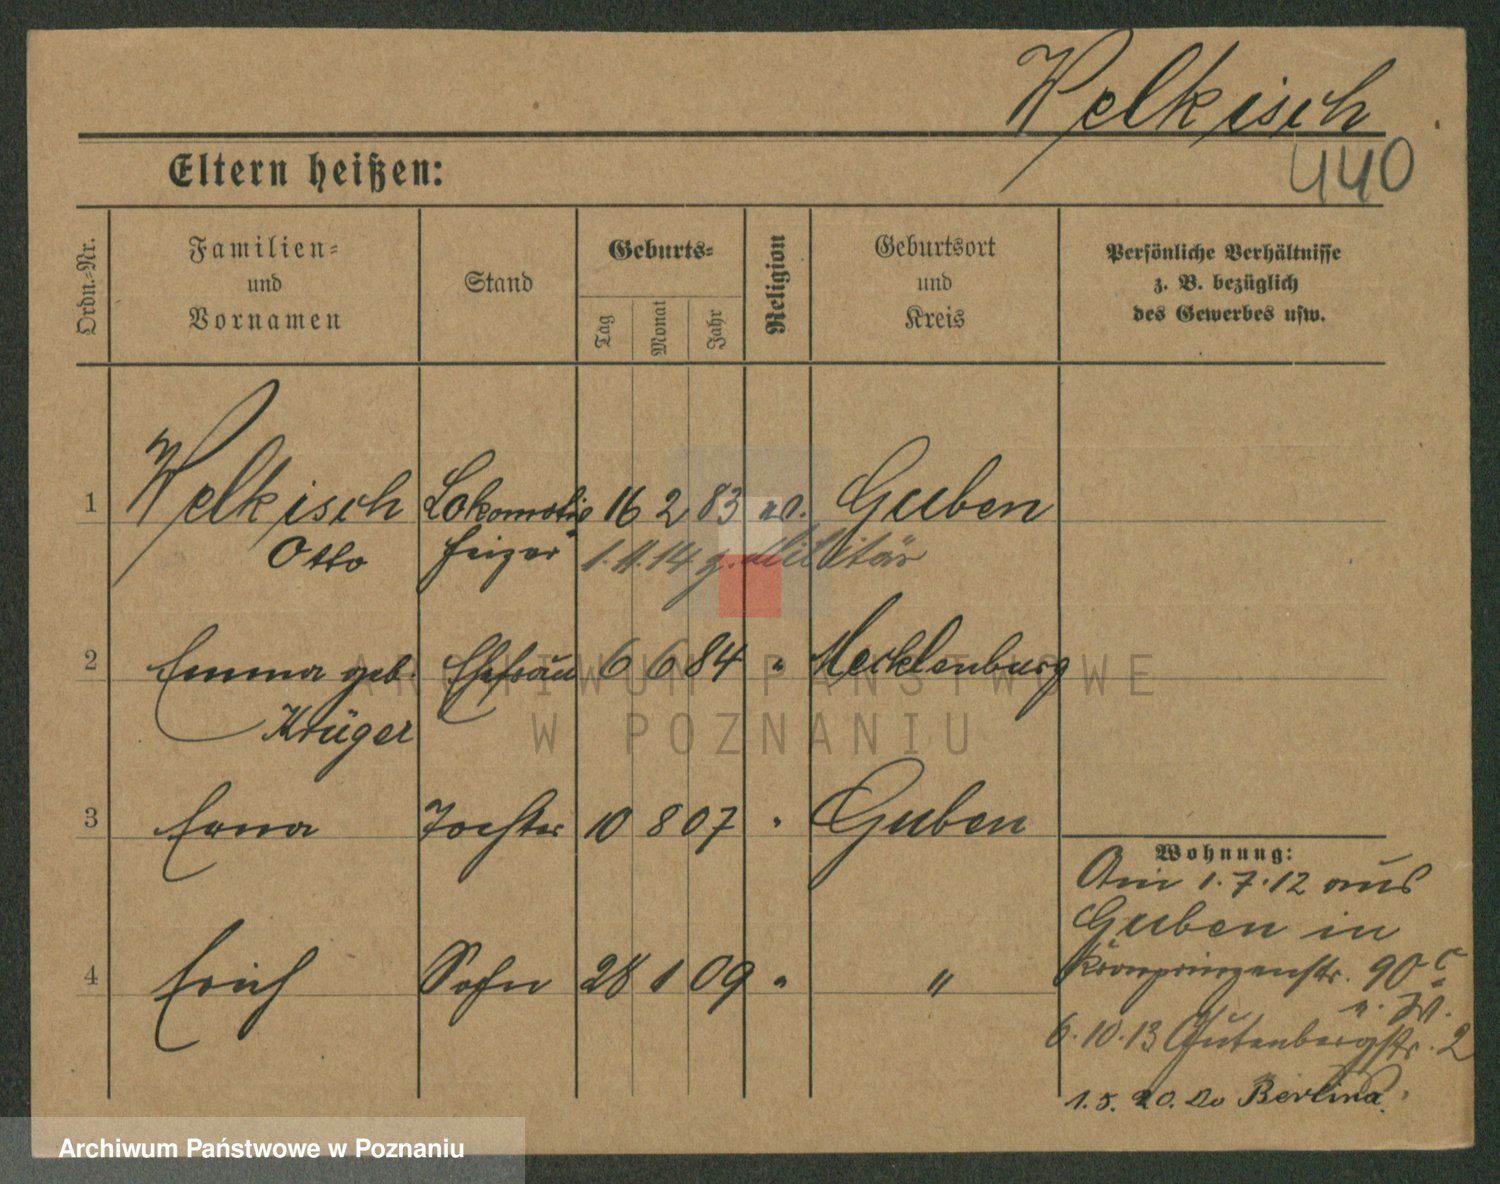 Welkisch
440
Eltern heißen:
Ordn.-Nr.
Familien-
und
Vornamen
Stand
Geburts-
Tag
Monat
Jahr
Religion
Geburtsort
und
Kreis
Persönliche Verhältnisse
z. B. bezüglich
des Gewerbes usw.
1 Welkisch Lokomotiv 16 2 83 ev. Guben
Otto heizer 1.11.14 z. Militär
2 Emma geb. Ehefrau 6 6 84 " Mecklenburg
Krüger
3 Erna Tochter 10 8 07 " Guben
Wohnung:
Am 1.7.12 aus
Guben in
4 Erich Sohn 28 1 09 " "
Kronprinzenstr. 90 c
6.10.13 Gutenbergstr. 2
1.5.20. Berlin
ARCHIWUM PAŃSTWOWE
W POZNANIU
Archiwum Państwowe w Poznaniu